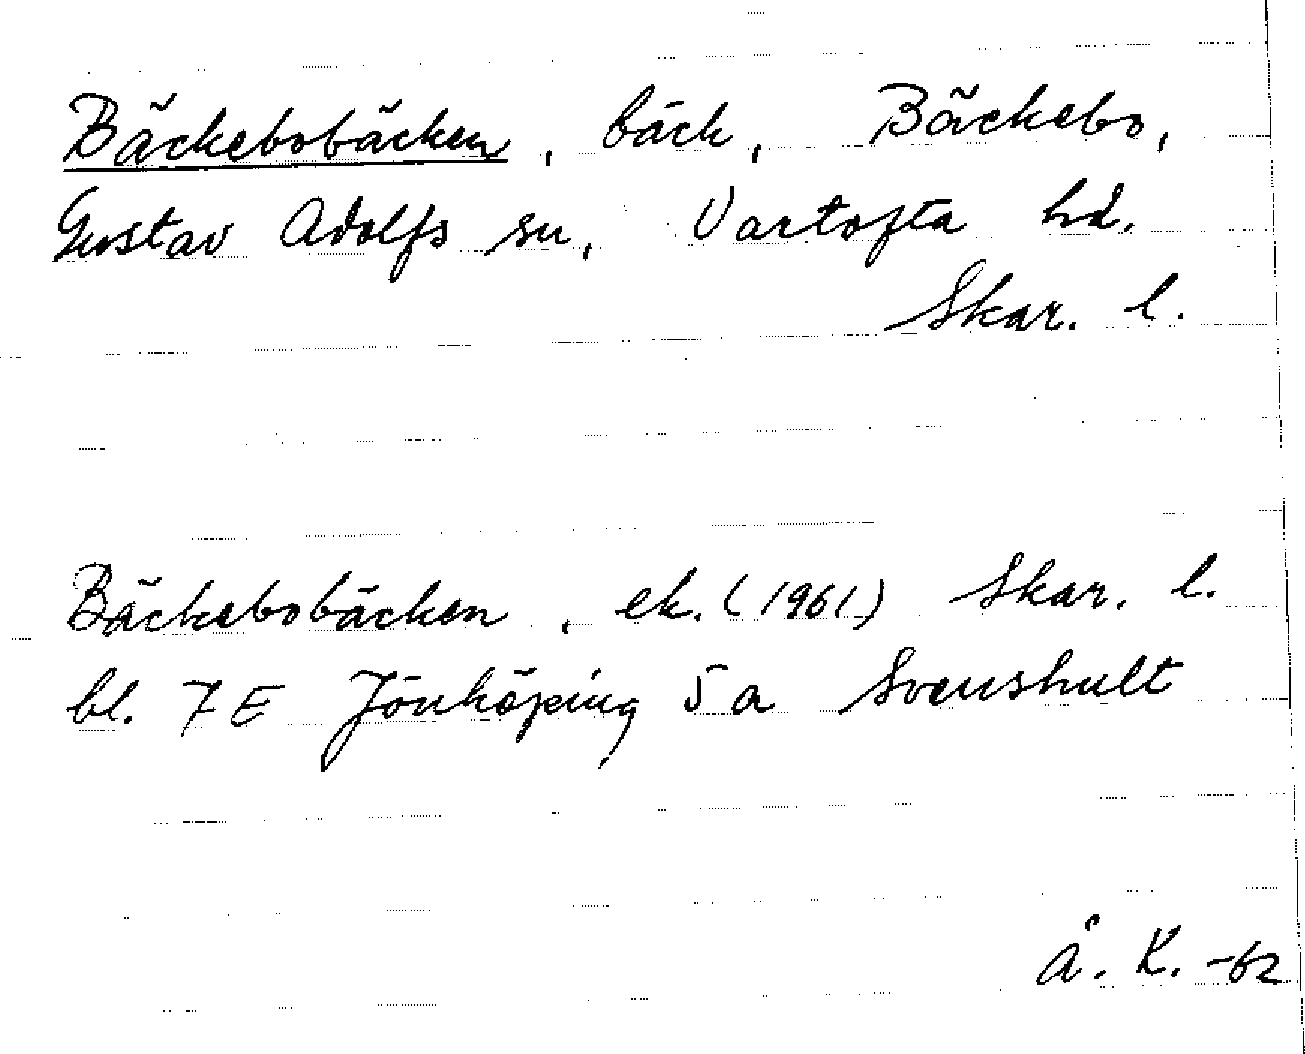 Bäckebobäcken, bäck, Bäckebo,
Gustav Adolfs sn, Vartofta hd.
Skar. l.
Bäckebobäcken, ek. (1961) Skar. l.
bl. 7 E Jönköping 5 a Svenshult
Å. K. -62